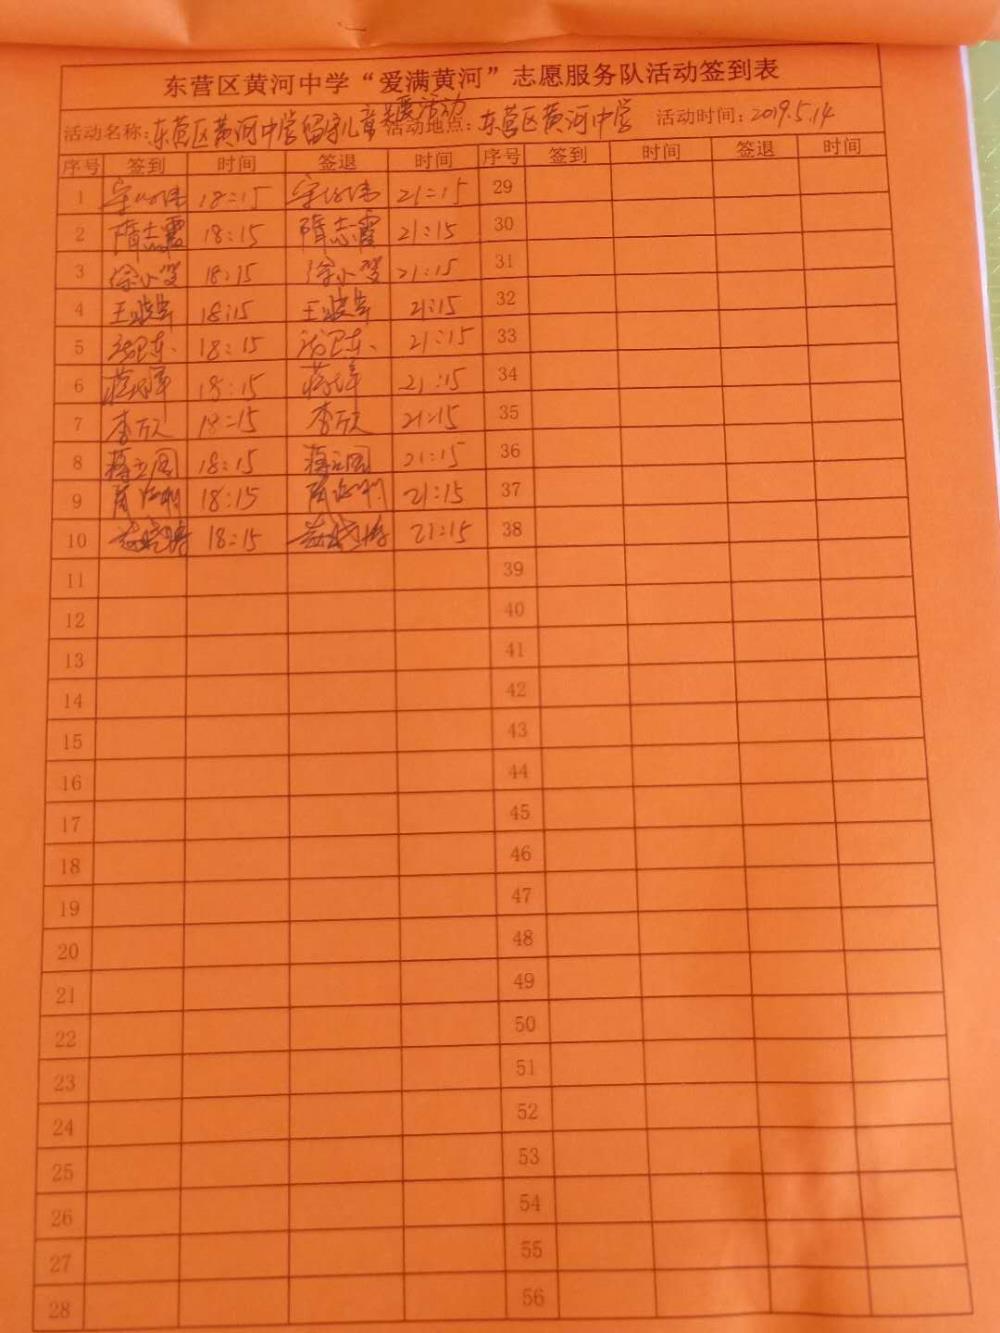 东营区黄河中学“爱满黄河”志愿服务队活动签到表
关爱活动
活动名称:东营区黄河中学留守儿童 活动地点:东营区黄河中学 活动时间:2019.5.14
序号 签到 时间 签退 时间 序号 签到 时间 签退 时间
1 18:15 21:15 29
2 隋志霞 18:15 隋志霞 21:15 30
3 徐小贤 18:15 徐小贤 21:15 31
4 18:15 21:15 32
5 18:15 21:15 33
6 18:15 21:15 34
7 李欣 18:15 李欣 21:15 35
8 18:15 21:15 36
9 18:15 21:15 37
10 18:15 21:15 38
11 39
12 40
13 41
14 42
15 43
16 44
17 45
18 46
19 47
20 48
21 49
22 50
23 51
24 52
25 53
26 54
27 55
28 56